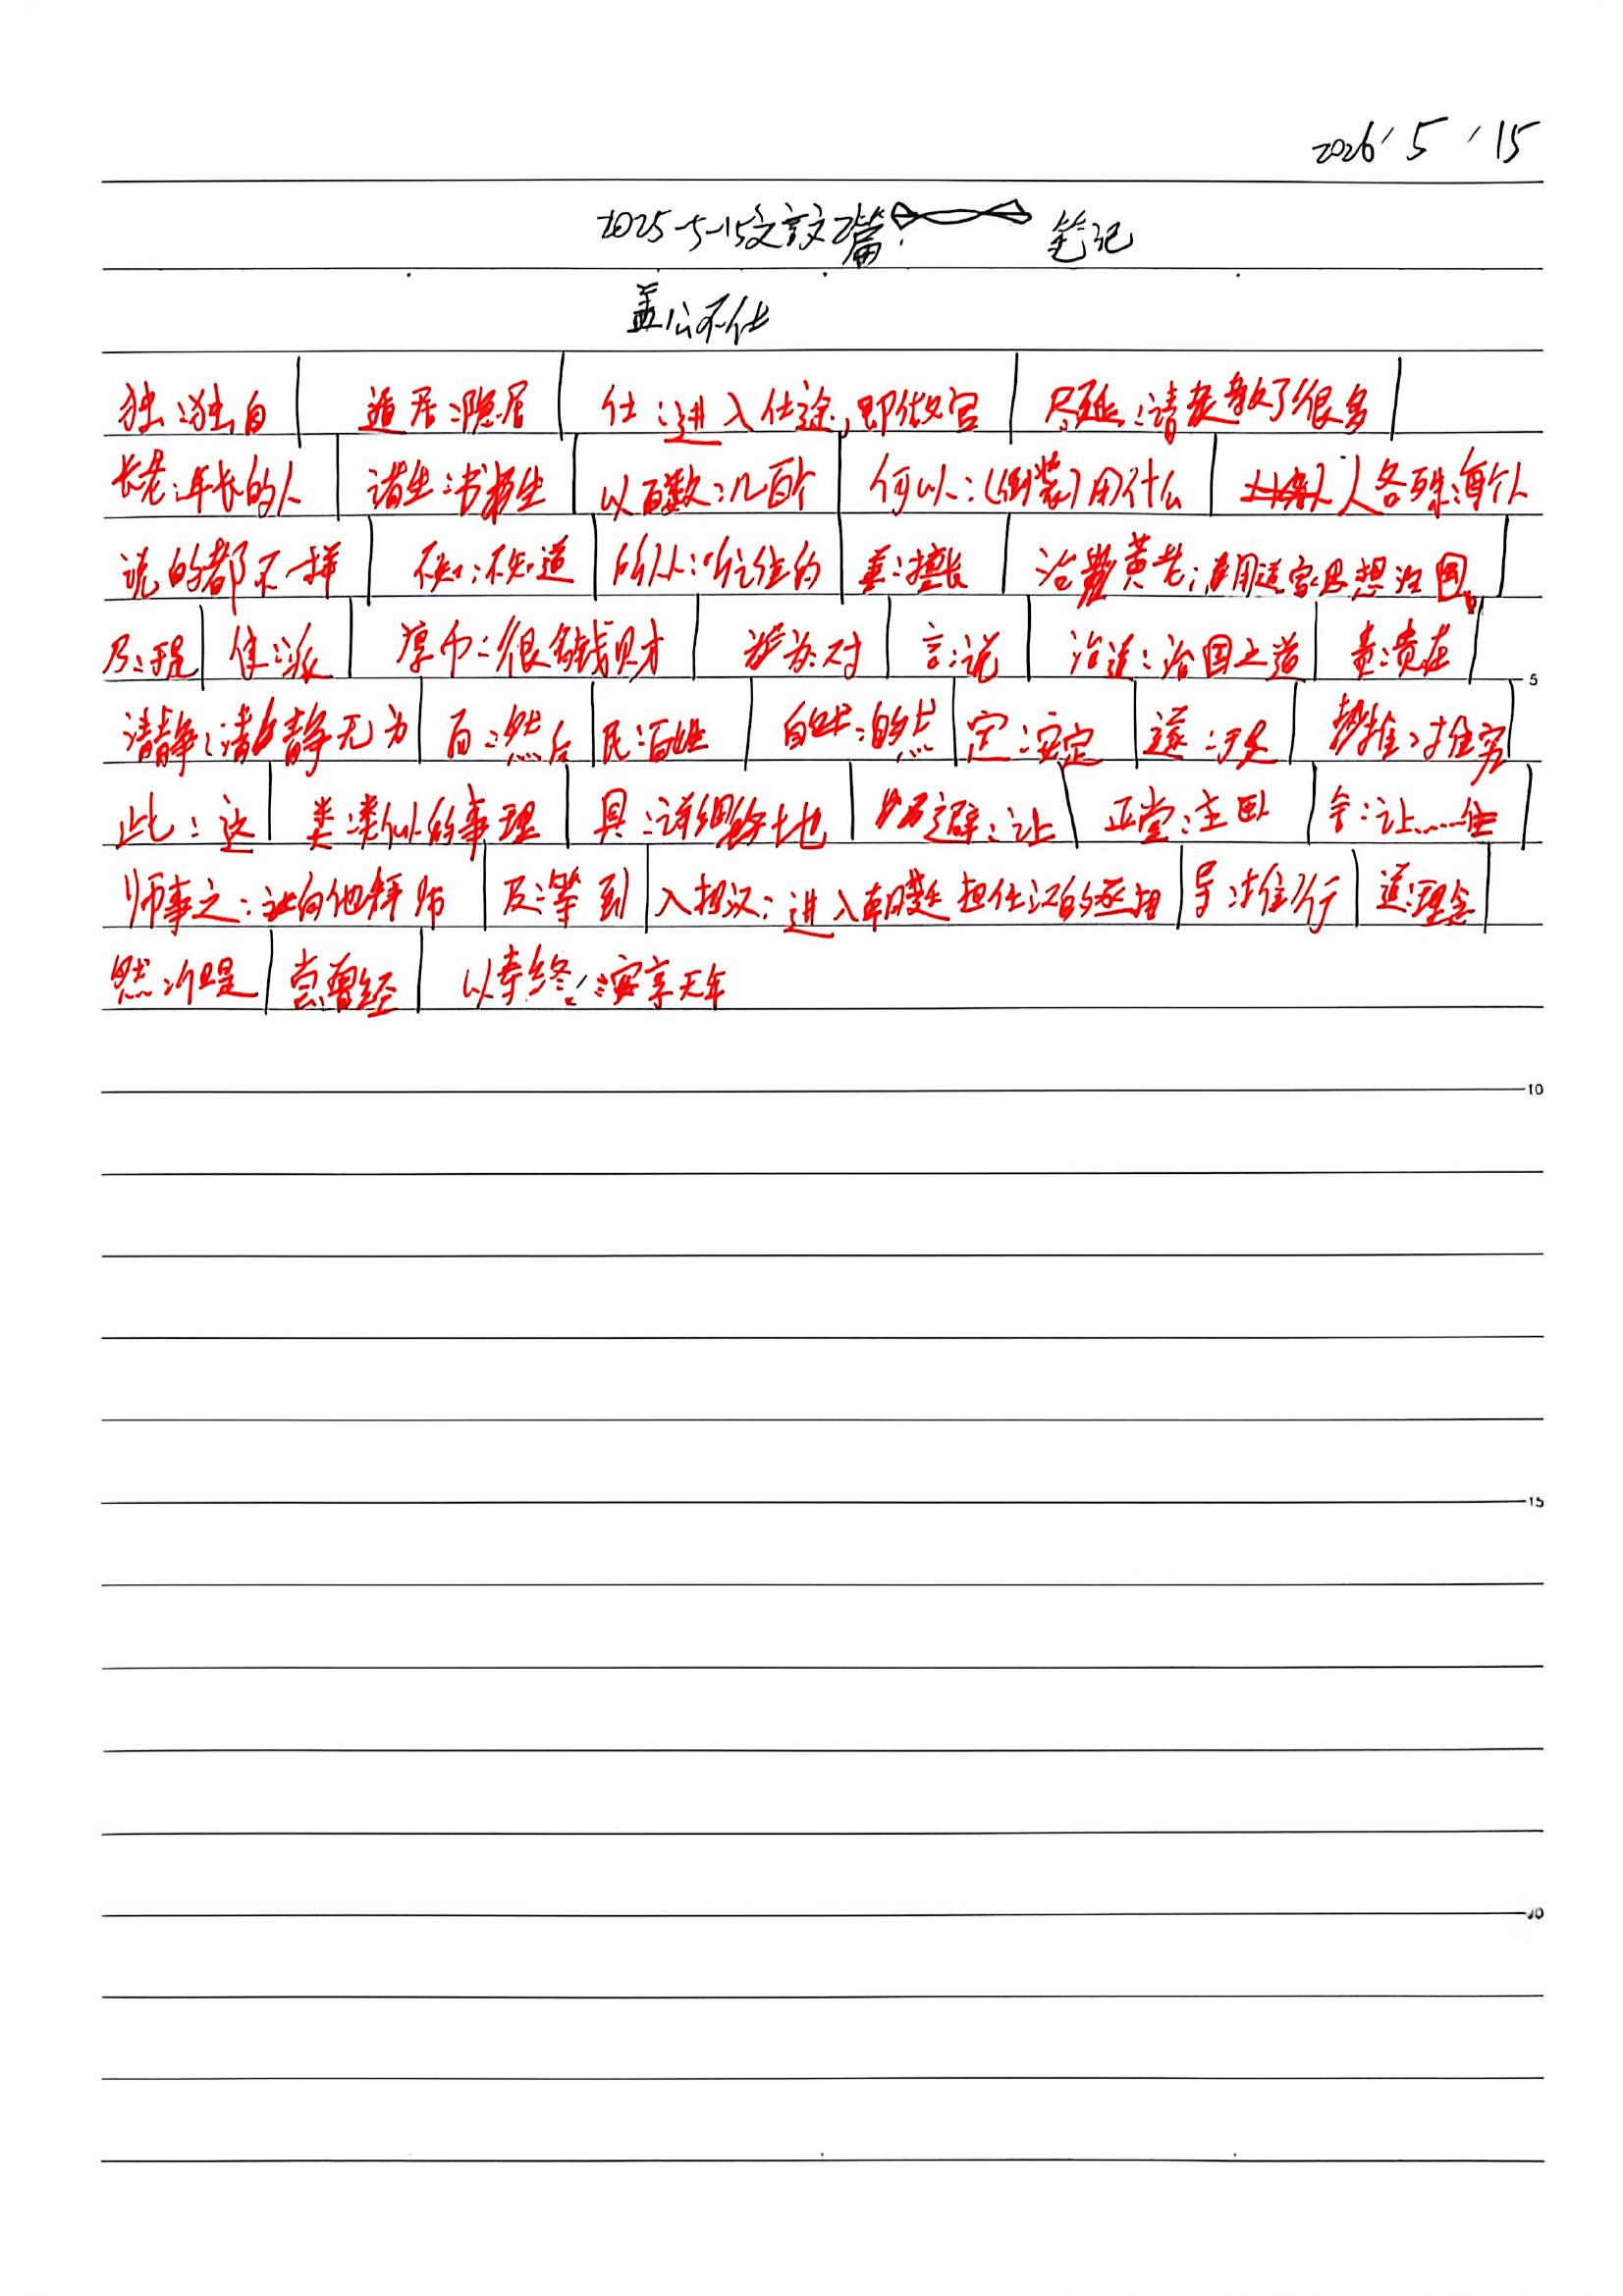 2026'5'15
2025-5-15文言文2篇 笔记
盖公不仕
独:独自 遁居:隐居 仕:进入仕途,即做官 尽延:请教了很多
长老:年长的人 诸生:书生 以百数:几百个 何以:(倒装)用什么 人各殊:每个人
说的都不一样 不知:不知道 所从:听从的 善:擅长 治黄老:用道家思想治国。
乃:于是 使:派 厚币:很多钱财 为:对 言:说 治道:治国之道 贵:贵在
清静:清静无为 而:然后 民:百姓 自:自然 定:安定 遂:于是 推:推究
此:这 类:类似的事理 具:详细地 避:让 正堂:主卧 舍:让……住
师事之:向他拜师 及:等到 入相汉:进入朝廷担任汉的丞相 导:推行 道:理念
然:但是 尝:曾经 以寿终:安享天年
5
10
15
20